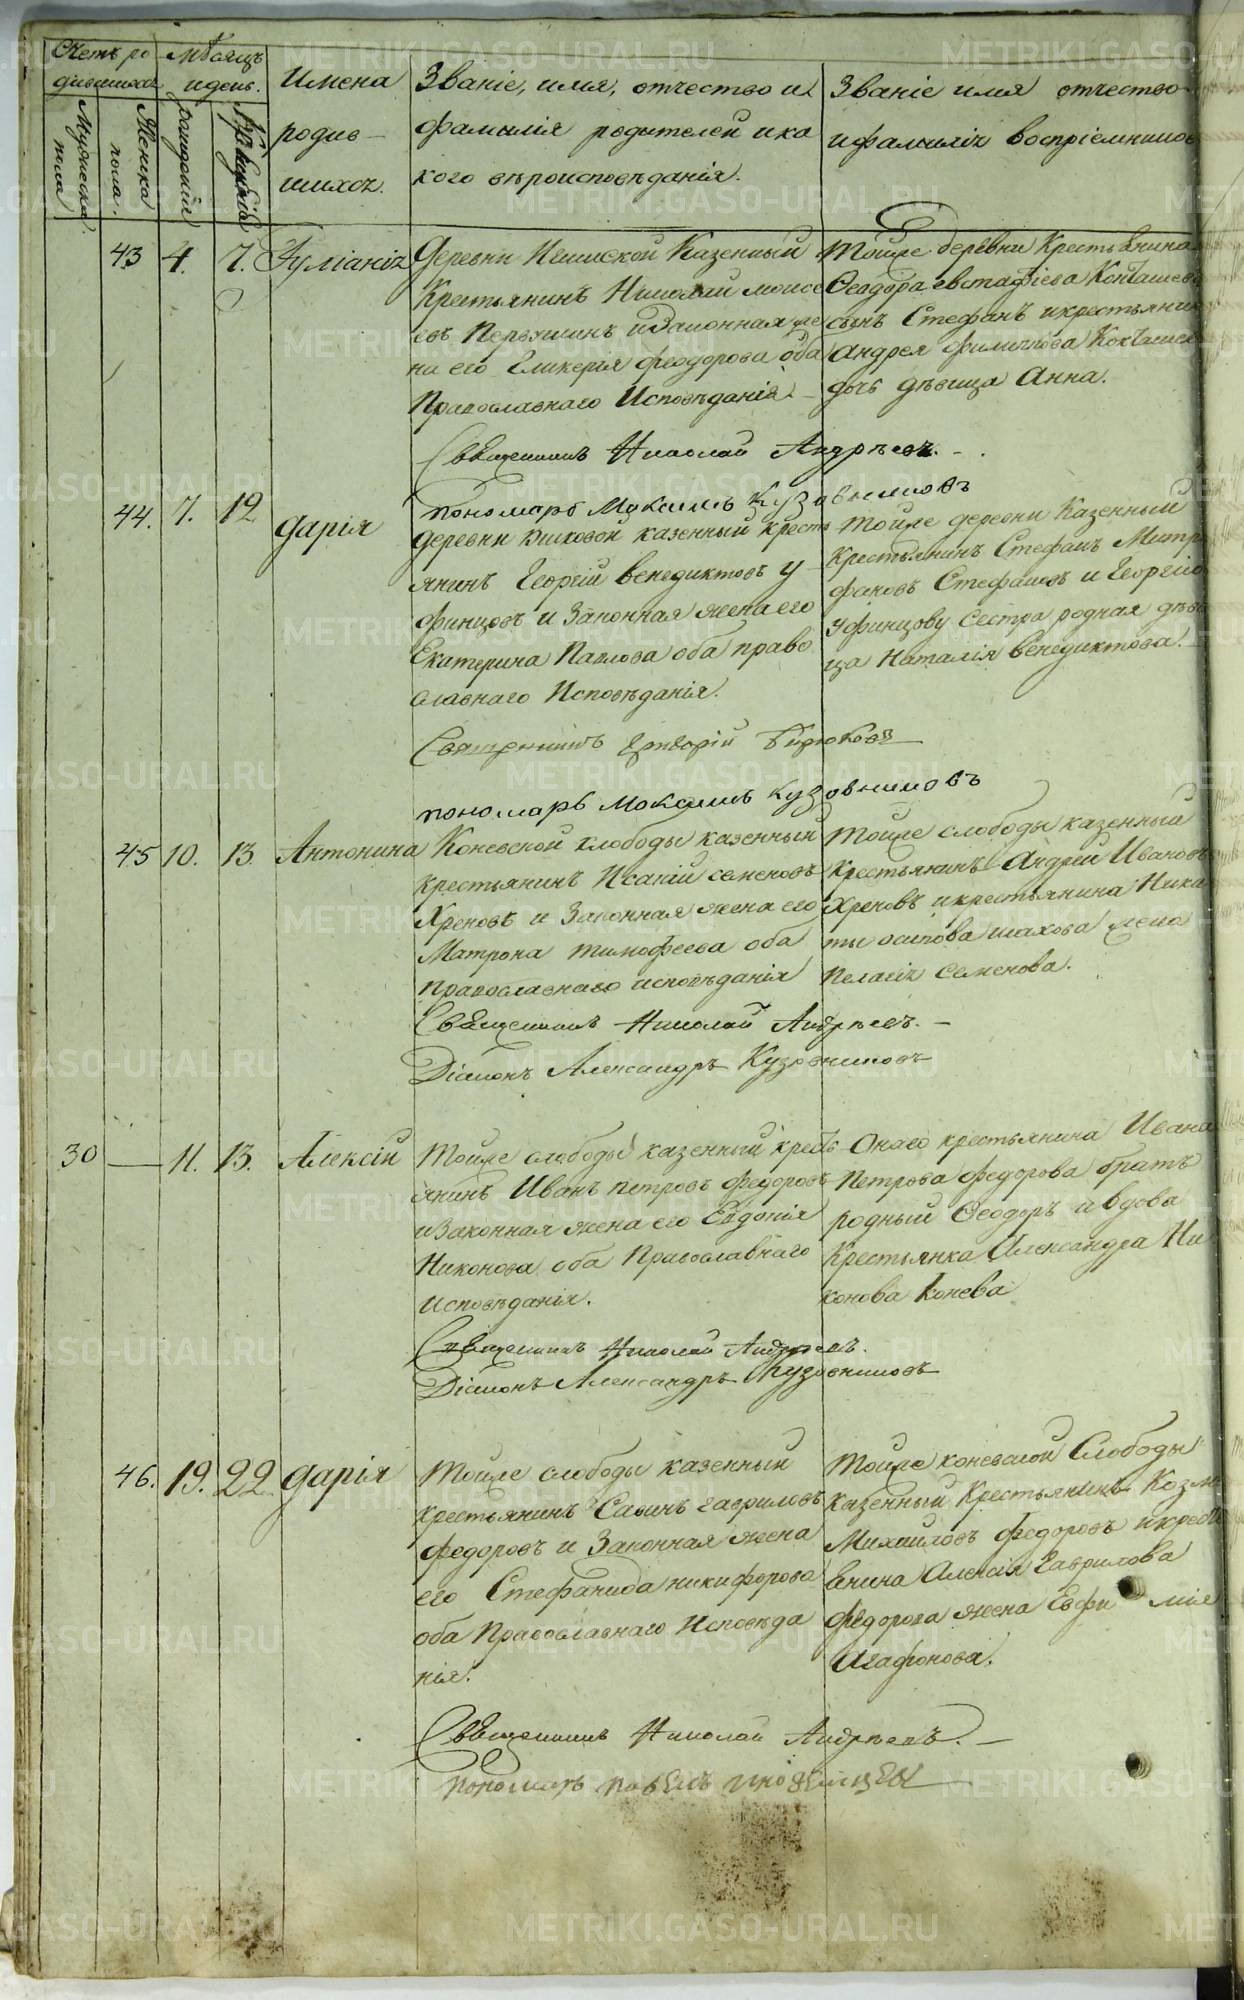 Счетъ ро
дившихся
Мужеска
пола
Женска
пола.
Мѣсяцъ
и день.
рожденія
крещенія
Имена
родив
шихся.
Званіе, имя, отчество и
фамилія родителей и ка
кого вѣроисповѣданія.
Званіе имя отчество
и фамилія воспріемниковъ
43
4.
7.
Іуліанія
Деревни Казенный
Крестьянинъ Николай моисе
евъ Первушинъ и Законная же
на его Гликерія феодорова оба
Православнаго Исповѣданія.
Тойже деревни Крестьянина
Ѳеодора евстафіева
сынъ Стефанъ и крестьянина
Андрея филиппова
дочь дѣвица Анна.
Священникъ Николай Андрѣевъ.
пономарь Максимъ Кузовниковъ
44.
7.
12
дарія
деревни казенный кресть
янинъ Георгій венедиктовъ У
финцовъ и Законная жена его
Екатерина Павлова оба право
славнаго Исповѣданія.
Тойже деревни Казенный
Крестьянинъ Стефанъ Митро
фановъ Стефановъ и Георгію
Уфинцову Сестра родная дѣви
ца Наталія венедиктова.
Священникъ Григорій Бирюковъ
пономарь Максимъ Кузовниковъ
45
10.
13
Антонина
Коневской слободы казенный
крестьянинъ Исакій семеновъ
Хреновъ и Законная жена его
Матрона тимофеева оба
православнаго исповѣданія
Тойже слободы казенный
Крестьянинъ Андрей Ивановъ
Хреновъ и крестьянина Ники
ты осипова шахова жена
Пелагія Семенова.
Священникъ Николай Андрѣевъ.
Діаконъ Александръ Кузовниковъ
30
11.
13.
Алексій
Тойже слободы казенный кресть
янинъ Иванъ петровъ федоровъ
и Законная жена его Евдокія
Никонова оба Православнаго
исповѣданія.
Онаго крестьянина Ивана
Петрова федорова братъ
родный Ѳеодоръ и вдова
Крестьянка Александра Ни
конова Конева
Священникъ Николай Андрѣевъ.
Діаконъ Александръ Кузовниковъ
46.
19.
22
дарія
Тойже слободы казенный
крестьянинъ Савинъ гавриловъ
федоровъ и Законная жена
его Стефанида никифорова
оба Православнаго Исповѣда
нія.
Тойже коневской Слободы
казенный Крестьянинъ Козма
Михайловъ федоровъ и кресть
янина Алексія Гаврилова
федорова жена Евфи мія
Агафонова.
Священникъ Николай Андрѣевъ.
пономарь павелъ
METRIKI.GASO-URAL.RU